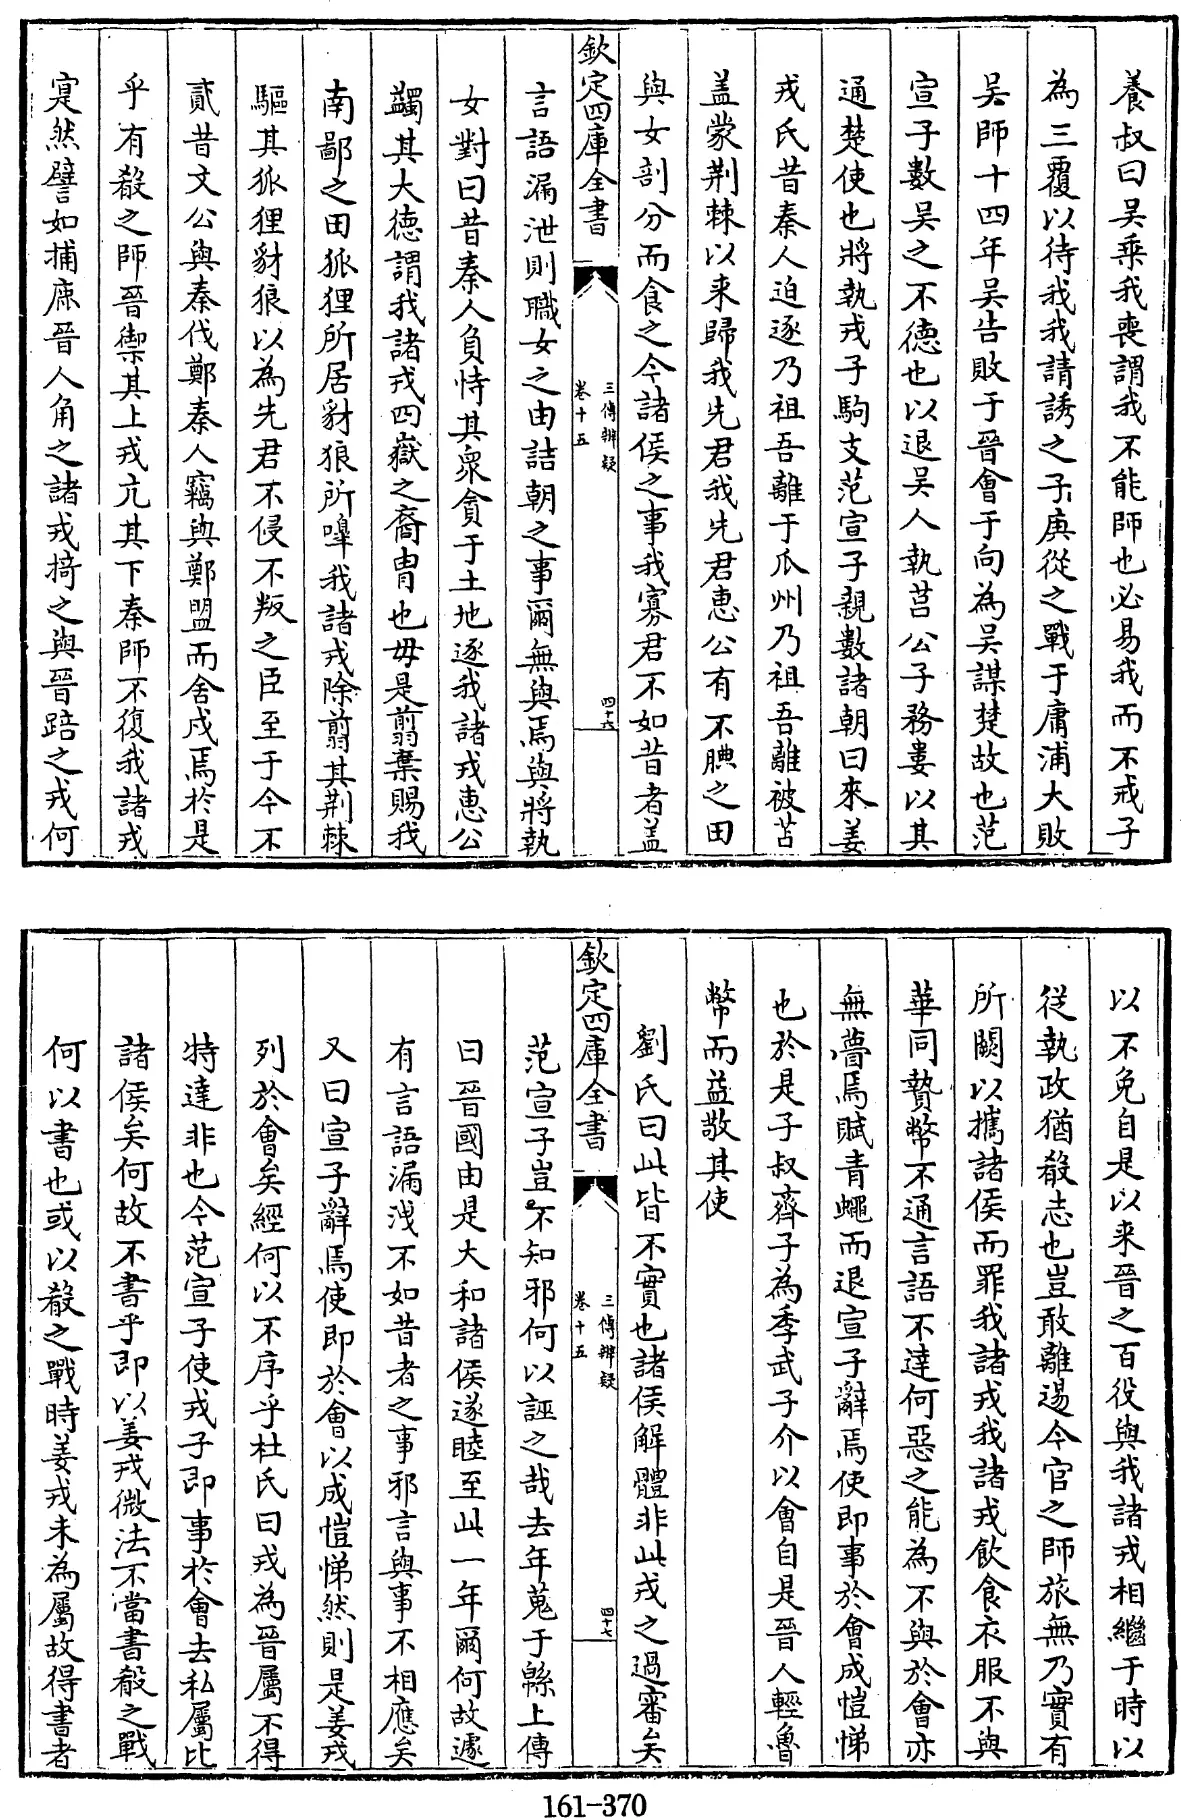 養叔曰吴乘我喪謂我不能師也必易我而不戒子
為三覆以待我我請誘之子庚從之戰于庸浦大敗
吴師十四年吴告敗于晉會于向為吴謀楚故也范
宣子數吴之不德也以退吴人執莒公子務婁以其
通楚使也將執戎子駒支范宣子親數諸朝曰來姜
戎氏昔秦人迫逐乃祖吾離于瓜州乃祖吾離被苫
盖蒙荆棘以来歸我先君我先君惠公有不腆之田
與女剖分而食之今諸侯之事我寡君不如昔者盖
欽定四庫全書
三傳辨疑
卷十五
四十六
言語漏泄則職女之由詰朝之事爾無與焉與將執
女對曰昔秦人負恃其衆貪于土地逐我諸戎惠公
蠲其大德謂我諸戎四嶽之裔冑也毋是翦棄賜我
南鄙之田狐狸所居豺狼所嘷我諸戎除翦其荆棘
驅其狐狸豺狼以為先君不侵不叛之臣至于今不
貳昔文公與秦伐鄭秦人竊與鄭盟而舍戍焉於是
乎有殽之師晉禦其上戎亢其下秦師不復我諸戎
寔然譬如捕鹿晉人角之諸戎掎之與晉踣之戎何
以不免自是以来晉之百役與我諸戎相繼于時以
從執政猶殽志也豈敢離逷今官之師旅無乃實有
所闕以攜諸侯而罪我諸戎我諸戎飲食衣服不與
華同贄幣不通言語不達何惡之能為不與於會亦
無瞢焉賦青蠅而退宣子辭焉使即事於會成愷悌
也於是子叔齊子為季武子介以會自是晉人輕魯
幣而益敬其使
劉氏曰此皆不實也諸侯解體非此戎之過審矣
欽定四庫全書
三傳辨疑
卷十五
四十七
范宣子豈不知邪何以誣之哉去年蒐于緜上傳
曰晉國由是大和諸侯遂睦至此一年爾何故遽
有言語漏洩不如昔者之事邪言與事不相應矣
又曰宣子辭焉使即於會以成愷悌然則是姜戎
列於會矣經何以不序乎杜氏曰戎為晉屬不得
特達非也今范宣子使戎子即事於會去私屬比
諸侯矣何故不書乎即以姜戎微法不當書殽之戰
何以書也或以殽之戰時姜戎未為屬故得書者
161-370